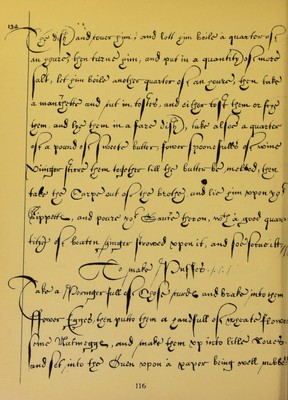 134
The dish and cover him: and lett him boile a quarter of
an houre, then turne him, and put in a quantity of more
salt, let him boile another quarter of an houre, then take
a manchette and cut in tostes, and either tost them or frye
them and lye them in a faire Dish, take alsoe a quarter
of a pound of sweete butter, fower spoonefulls of wine
Viniger stirre them together till the butter be melted, then
take the Carpe out of the brothe, and lie him upon yor
Sippets, and poure yor Sauce theron, wth a good quan-
titye of beaten Ginger strowed upon it, and soe serve itt
To make Puffes
Take a Poringer full of Cheese curds and brake into them
ffower Egges, then putto them a handfull of wheate flower
some Nutmegge, and make them up into litle Loaves
and set into the Oven upon a paper being well rubbed
116